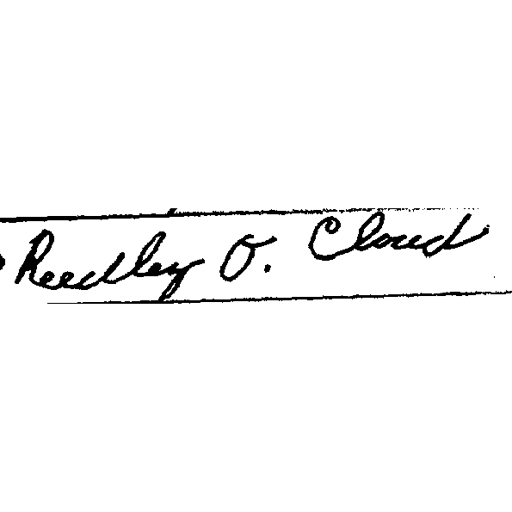 Reedley O. Cloud